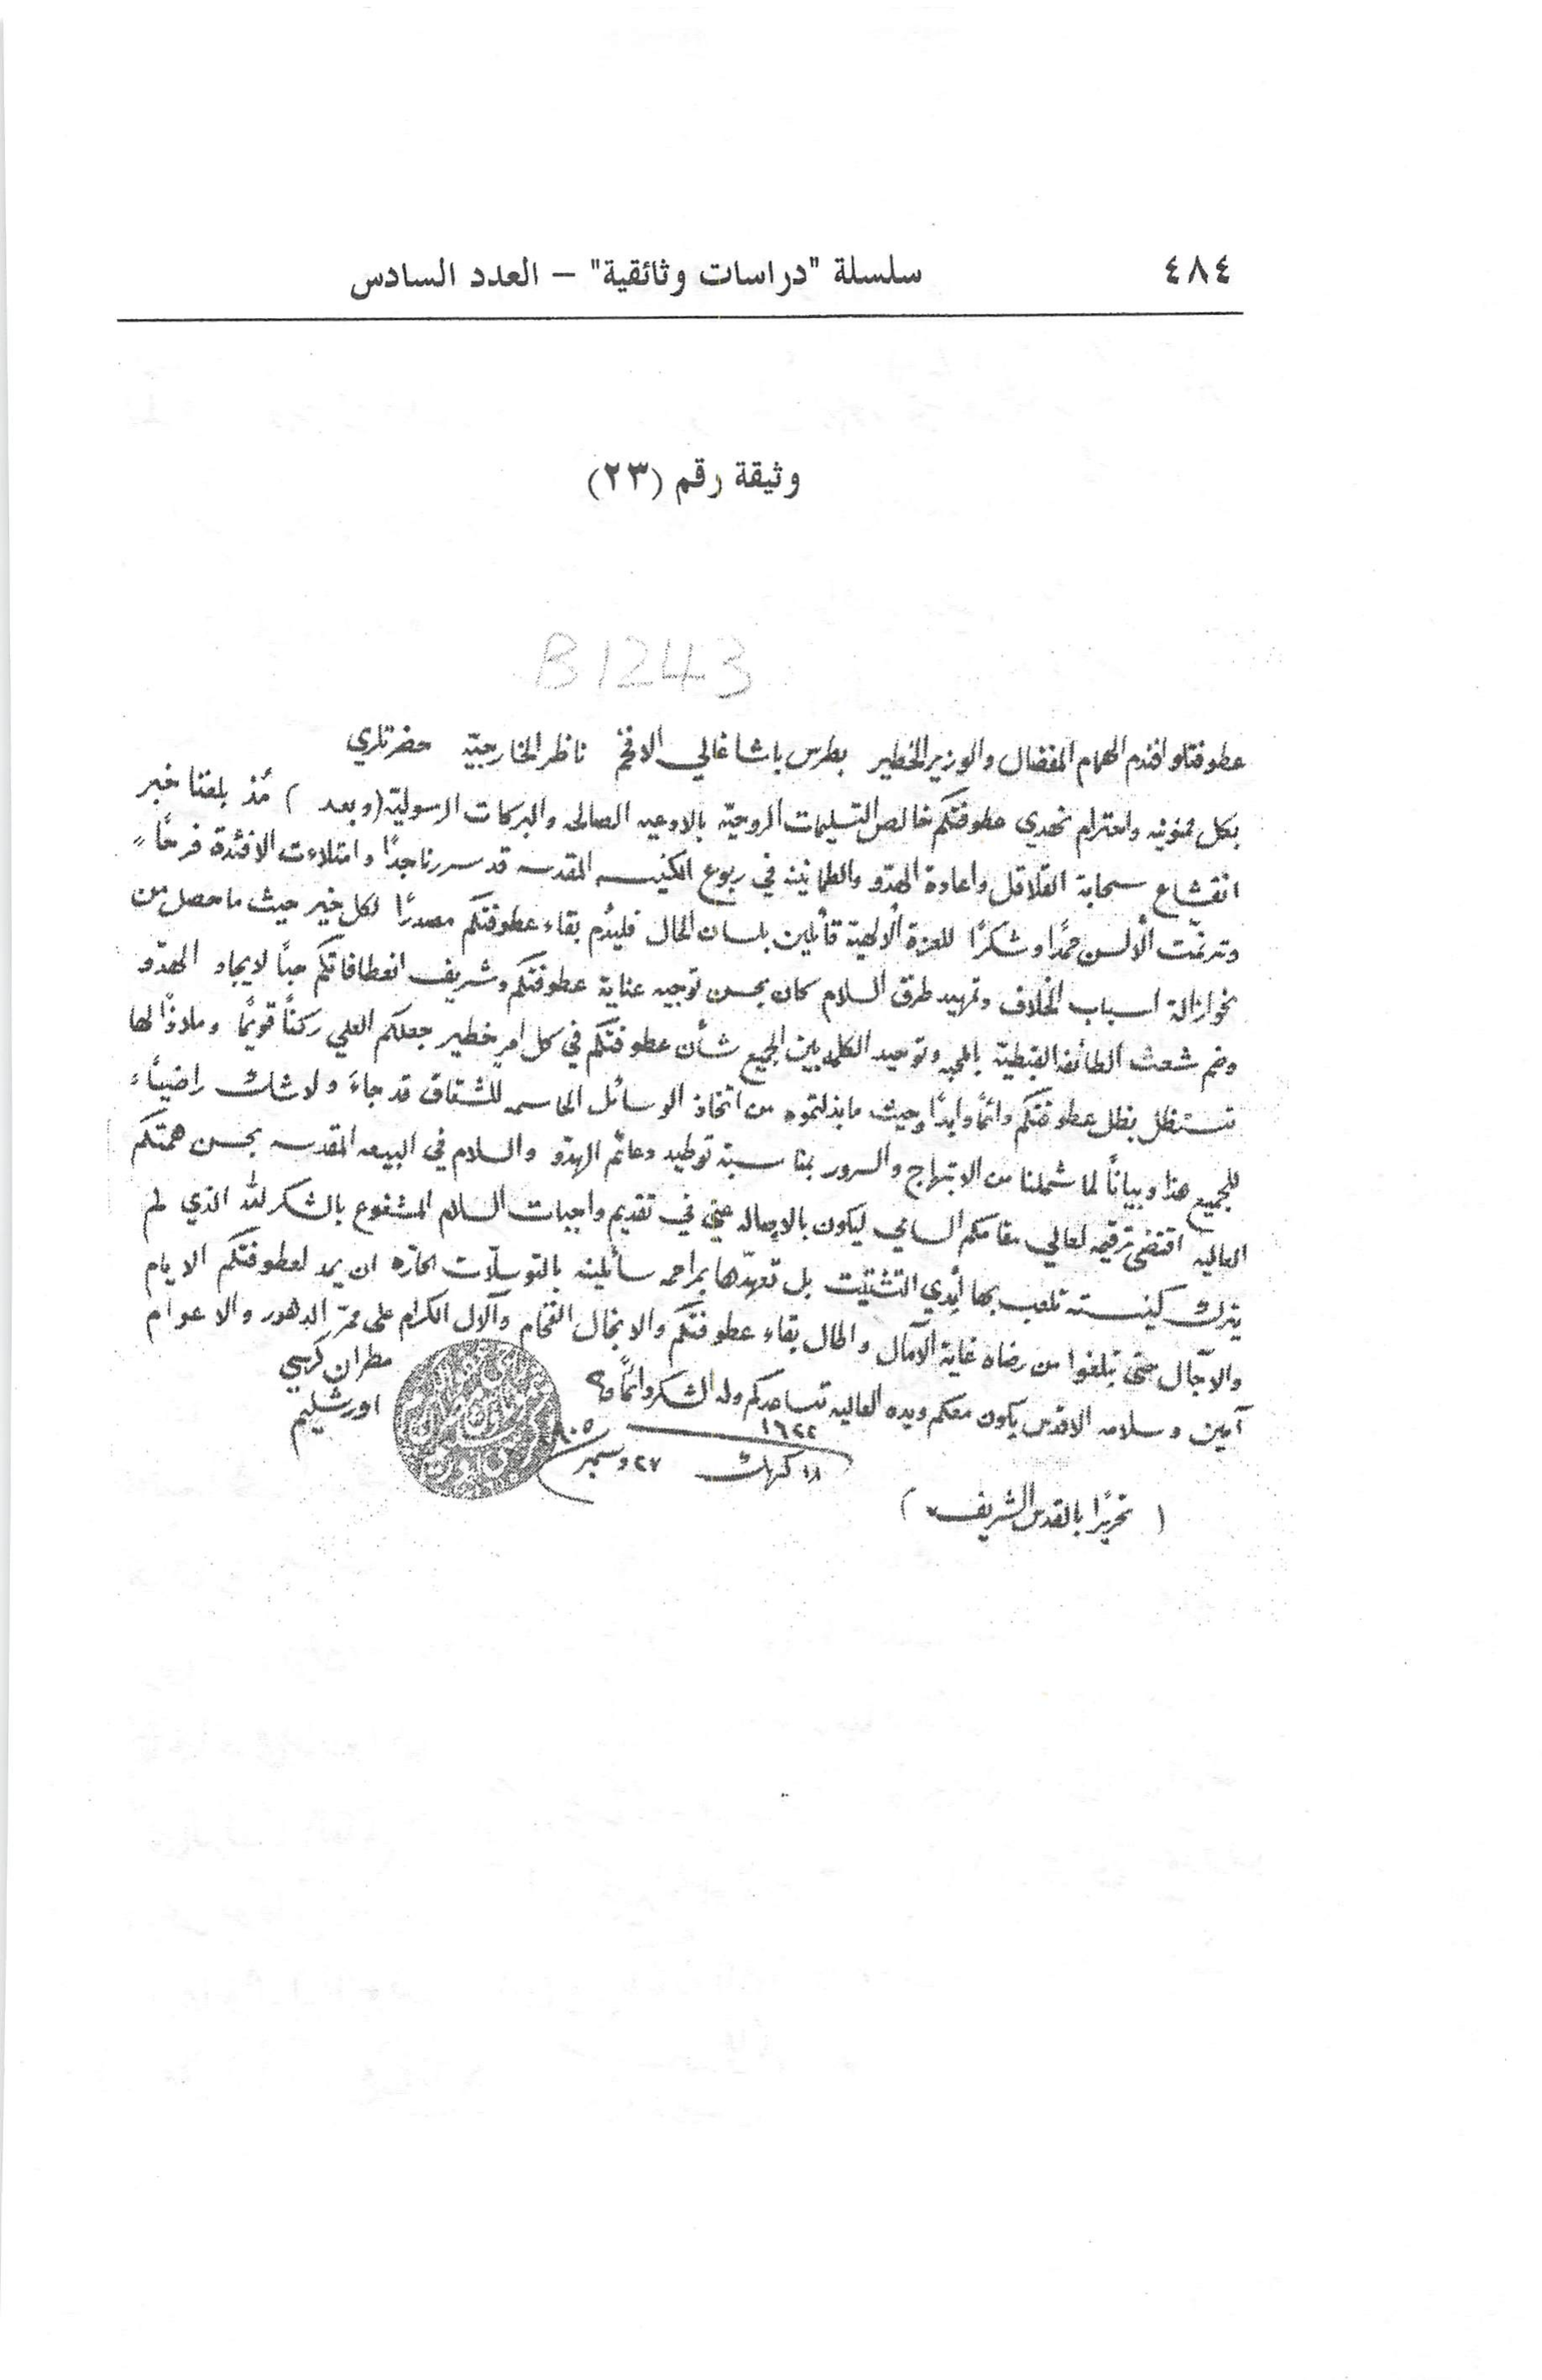 ٤٨٤ سلسلة "دراسات وثائقية" – العدد السادس
وثيقة رقم (٢٣)
B1243
عطوفتلو افندم الهمام المفضال والوزير الخطير بطرس باشا غالي الافخم ناظر الخارجيّة حضرتلري
بكل ممنونيه واحترام نهدي عطوفتكم خالص التسليمات الروحيّة بالادعيه الصالحه والبركات الرسوليّة (وبعد) مُذ بلغنا خبر
انقشاع سحابة القلاقل واعادة الهدّو والطمانينه في ربوع الكنيسه المقدسه قد سررنا جدًا وامتلاءت الافئدة فرحًا
وترنمّت الألسن حمدًا وشكرًا للعزة الألهيّة قأئلين بلسان الحال فليدُم بقاء عطوفتكم مصدرًا لكل خير حيث ما حصل من
نحو ازالة اسباب الخلاف وتمهيد طرق السلام كان بحسن توجيه عناية عطوفتكم وشريف انعطافاتكم حباً لايجاد الهدّو
وضم شعث الطائفه القبطيّة بالمحبه وتوحيد الكلمه بين الجميع شأن عطوفتكم في كل امرٍ خطير جعلكم العلي ركنًا قويًما وملاذًا لها
تستظل بظل عطوفتكم دائمًا وابدًا وحيث ما بذلتموه من اتخاذ الوسائل الحاسمه للشقاق قد جاءَ ولا شك راضيًاء
للجميع هذا وبيانًا لما شملنا من الابتهاج والسرور بمناسبة توطيد دعائم الهدّو والسلام في البيعه المقدسه بحسن همتكم
العاليه اقتضى ترقيمه لعالي مقامكم السامي ليكون بالاصاله عني في تقديم واجبات السلام المشفوع بالشكر لله الذي لم
يترك كنيسته تلعب بها أيدي التشتيّت بل تعهدّها بمراحمه سائلينه بالتوسلّات الحارّه ان يمد لعطوفتكم الايام
والآجال حتى تبلغوا من رضاه غاية الآمال والحال بقاء عطوفتكم والانجال الفخام والآل الكرام على ممرّ الدهور والاعوام
آمين وسلامه الاقدس يكون معكم ويده العاليه تساعدكم وله الشكر دائمًا
مطران كرسي
اورشليم
١٦٢٢
١٨ كيهك ٢٧ دسمبر
(تحريرًا بالقدس الشريف)